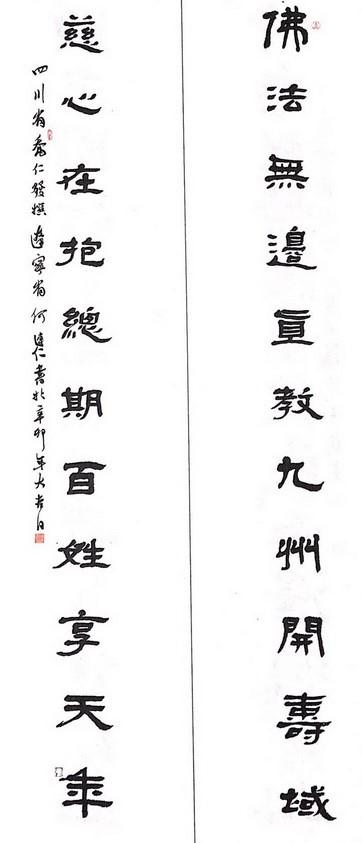 佛法無邊直教九州開壽域
慈心在抱總期百姓享天年
四川省喬仁發撰 遼寧省何書於辛卯年大吉日